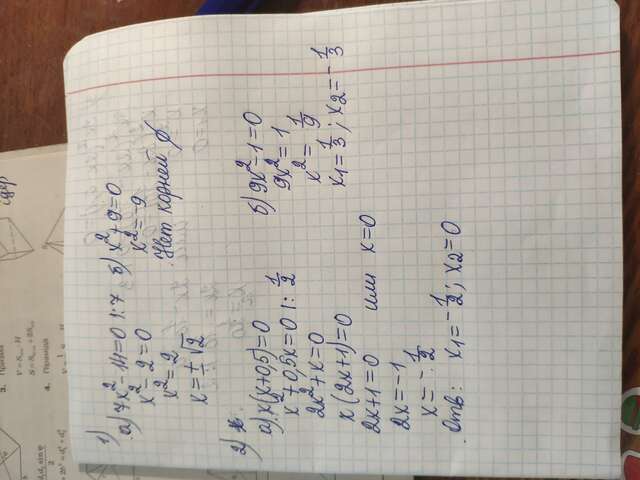 1)
а) 7x² - 14 = 0 |: 7
x² - 2 = 0
x² = 2
x = ±√2
б) x² + 9 = 0
x² = -9
Нет корней ∅
2)
а) x(x+0,5)=0
x² + 0,5x = 0 |: 1/2
2x² + x = 0
x(2x+1)=0
2x+1=0 или x=0
2x=-1
x=-1/2
Отв: x1=-1/2; x2=0
б) 9x² - 1 = 0
9x² = 1
x² = 1/9
x1 = 1/3; x2 = -1/3